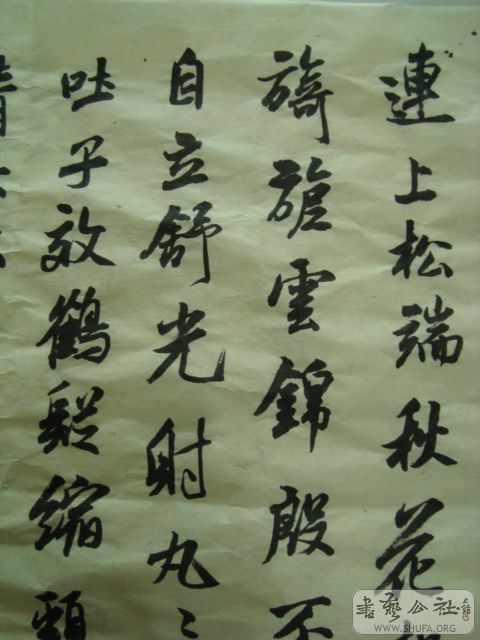 連上松端秋花
旖旎雲錦殷不
自立舒光射丸〻
吐子放鶴
縮頸
書藝公社
WWW.SHUFA.ORG